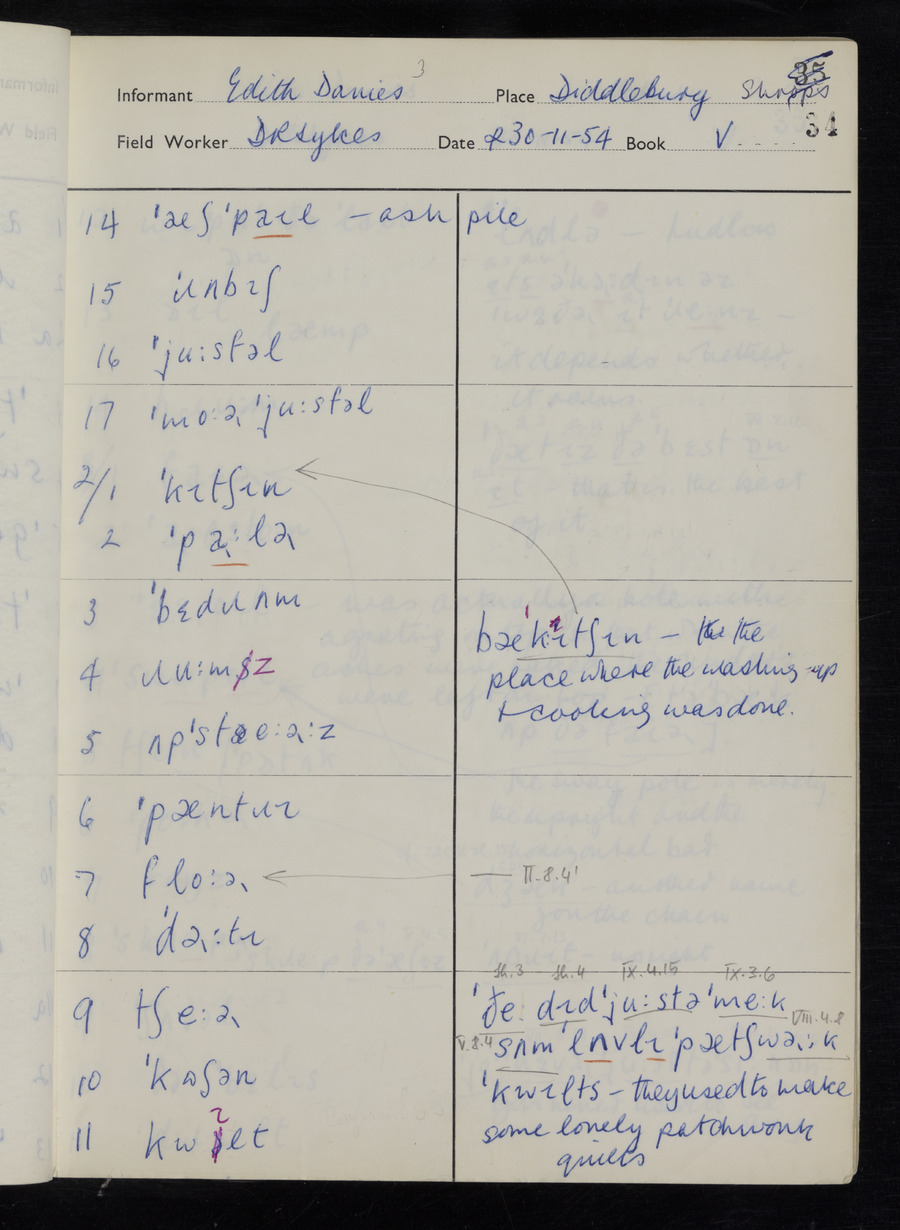 3
35
Informant Edith Davies Place Diddlebury Shrops
34
Field Worker DRSykes Date 30-11-54 Book V
14 ˈæʃˈpəɪl – ash pile
15 ɹʌbɪʃ
16 ˈjuːstəl
17 ˈmoːəˈjuːstəl
2/1 ˈkɪtʃɪn
2 ˈpaːlə
3 ˈbɛdɹʌm
4 ɹuːmz
5 ʌpˈsteːəːz
6 ˈpæntɹɪ
7 floːə
II.8.4
8 ˈdəːtɪ
9 tʃeːə
10 ˈkʊʃən
11 kwɪlt
bækˈkɪtʃɪn – the the
place where the washing-up
+ cooking was done.
Sh.3 Sh.4 IX.4.15 IX.3.6
ˈðeː dɪdˈjuːstəˈmeːk
VIII.4.8
V.8.4 sʌmˈlʌvlɪˈpætʃwəːk
ˈkwɪlts – they used to make
some lonely patchwork
quilts